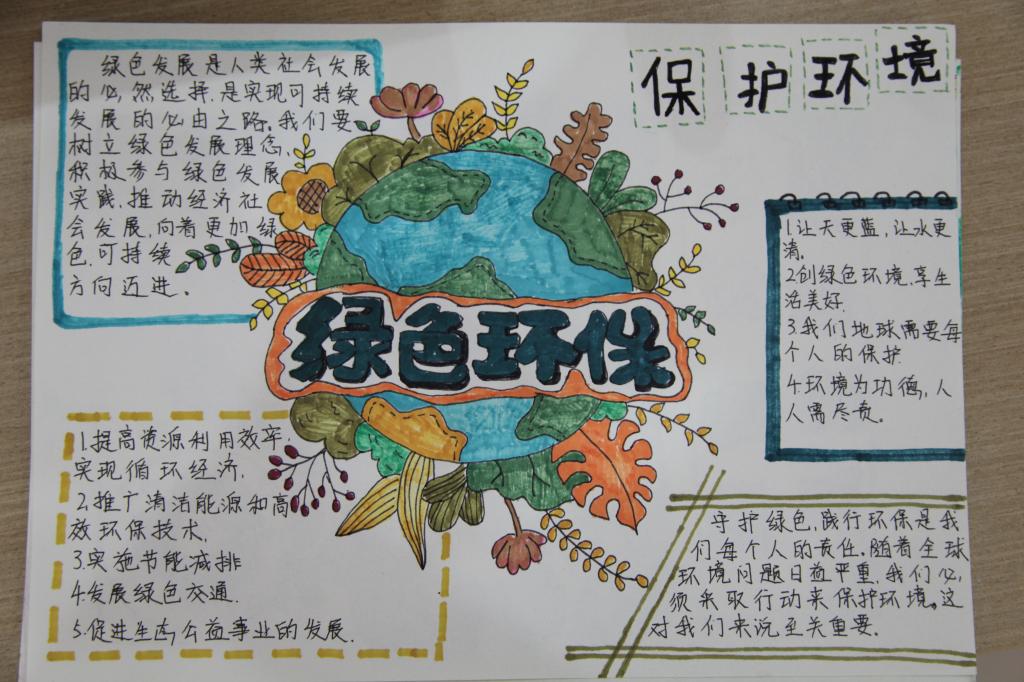 保护环境
绿色发展是人类社会发展
的必然选择,是实现可持续
发展的必由之路。我们要
树立绿色发展理念,
积极参与绿色发展
实践,推动经济社
会发展,向着更加绿
色,可持续
方向迈进。
绿色环保
1.让天更蓝,让水更
清。
2.创绿色环境,享生
活美好.
3.我们地球需要每
个人的保护
4.环境为功德,人
人需尽责。
1.提高资源利用效率,
实现循环经济.
2.推广清洁能源和高
效环保技术.
3.实施节能减排
4.发展绿色交通.
5.促进生态公益事业的发展.
守护绿色,践行环保是我
们每个人的责任.随着全球
环境问题日益严重,我们必
须采取行动来保护环境。这
对我们来说至关重要。